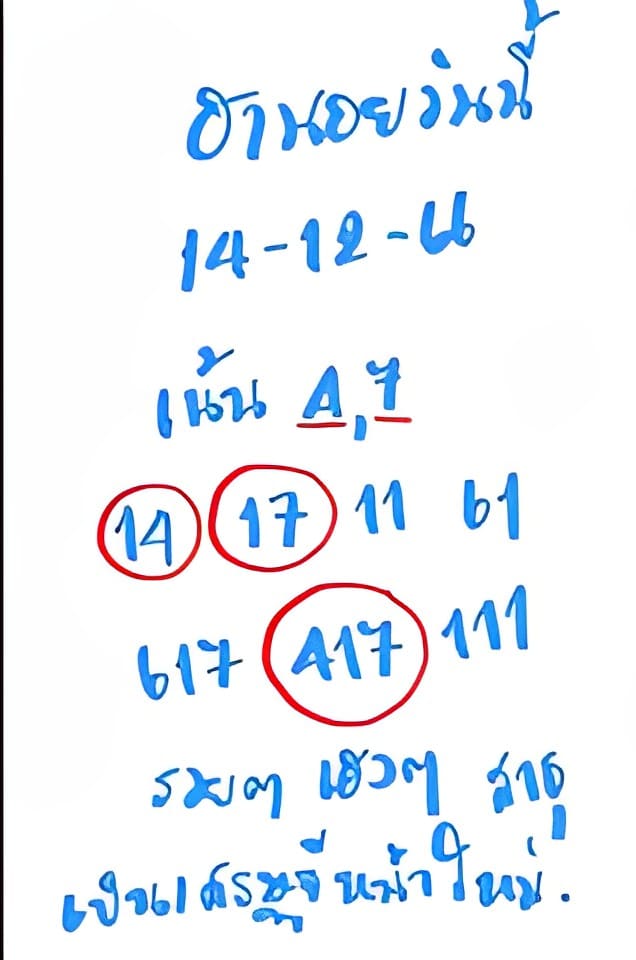 ฮานอยวันนี้
14-12-
เน้น 4,7
14 17 11 61
617 417 111
รวยๆ เฮงๆ สาธุ
เป็นเศรษฐีหน้าใหม่.